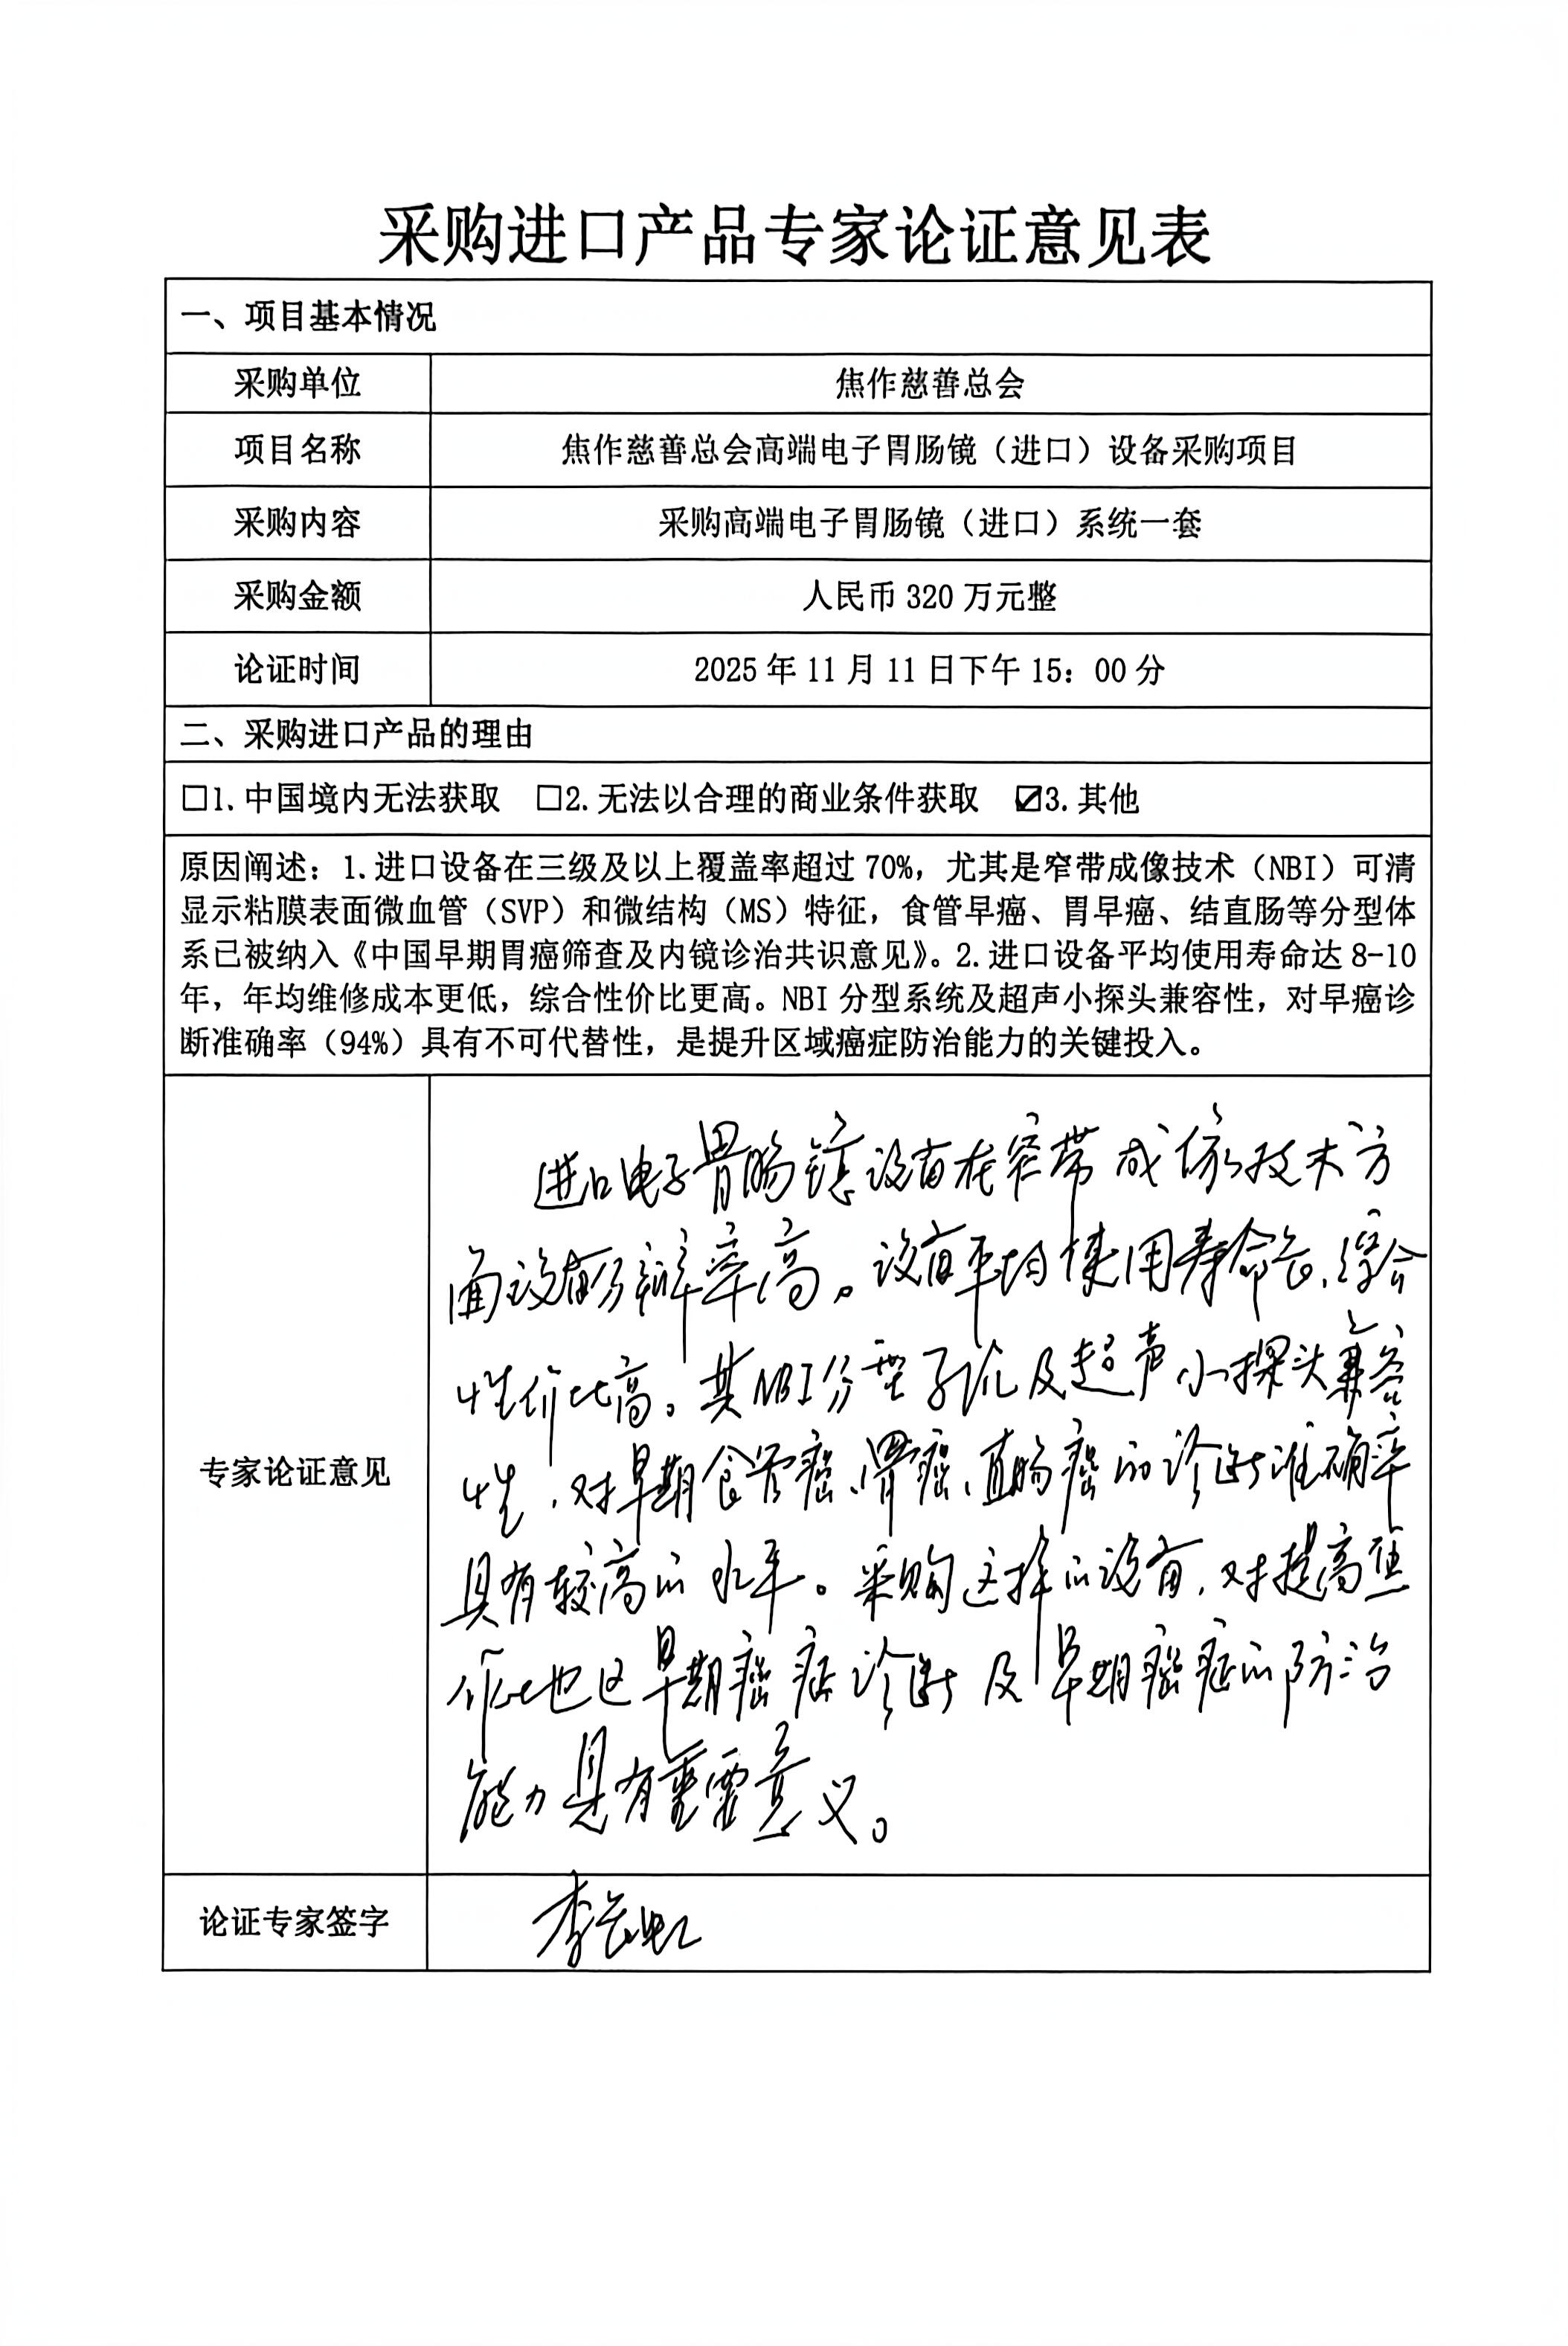 采购进口产品专家论证意见表
一、项目基本情况
采购单位 焦作慈善总会
项目名称 焦作慈善总会高端电子胃肠镜（进口）设备采购项目
采购内容 采购高端电子胃肠镜（进口）系统一套
采购金额 人民币 320 万元整
论证时间 2025 年 11 月 11 日下午 15：00 分
二、采购进口产品的理由
□1. 中国境内无法获取 □2. 无法以合理的商业条件获取 ☑3. 其他
原因阐述：1. 进口设备在三级及以上覆盖率超过 70%，尤其是窄带成像技术（NBI）可清
显示粘膜表面微血管（SVP）和微结构（MS）特征，食管早癌、胃早癌、结直肠等分型体
系已被纳入《中国早期胃癌筛查及内镜诊治共识意见》。2. 进口设备平均使用寿命达 8-10
年，年均维修成本更低，综合性价比更高。NBI 分型系统及超声小探头兼容性，对早癌诊
断准确率（94%）具有不可代替性，是提升区域癌症防治能力的关键投入。
专家论证意见
进口电子胃肠镜设备在窄带成像技术方
面设备分辨率高。设备平均使用寿命长，综合
性价比高。其NBI分型系统及超声小探头兼容
性，对早期食管癌、胃癌、直肠癌的诊断准确率
具有较高的水平。采购这样的设备，对提高焦
作地区早期癌症诊断及早期癌症的防治
能力具有重要意义。
论证专家签字 李